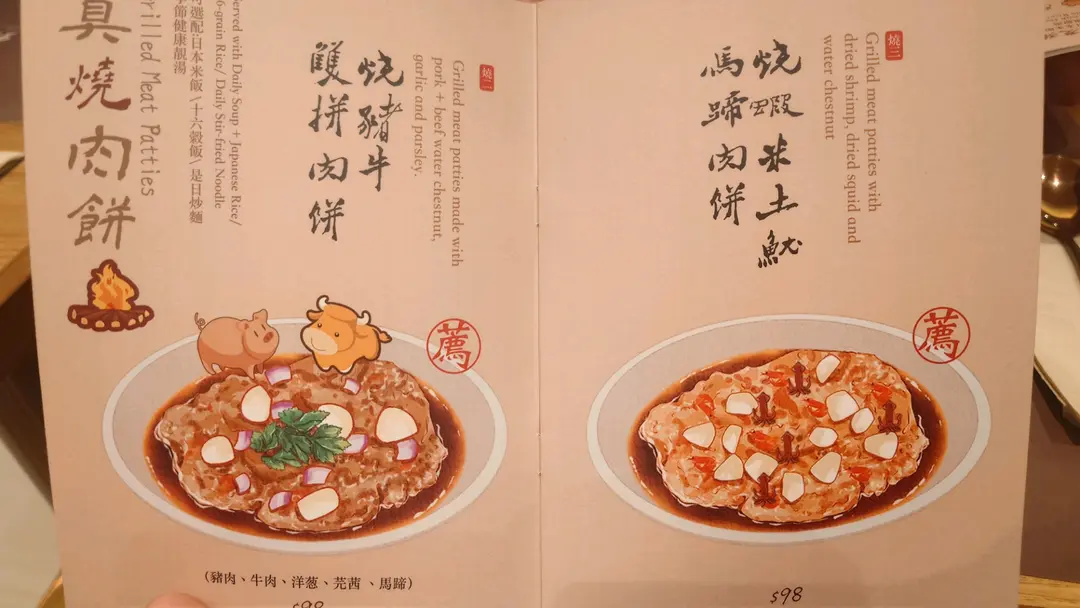 真燒肉餅
Grilled Meat Patties
Served with Daily Soup + Japanese Rice/
16-grain Rice/ Daily Stir-fried Noodle
可選配日本米飯\十六穀飯\是日炒麵
季節健康靚湯
燒二
Grilled meat patties made with
pork + beef water chestnut,
garlic and parsley.
燒豬牛
雙拼肉餅
薦
(豬肉、牛肉、洋葱、芫茜、馬蹄)
$98
燒三
Grilled meat patties with
dried shrimp, dried squid and
water chestnut
燒蝦米土魷
馬蹄肉餅
薦
$98